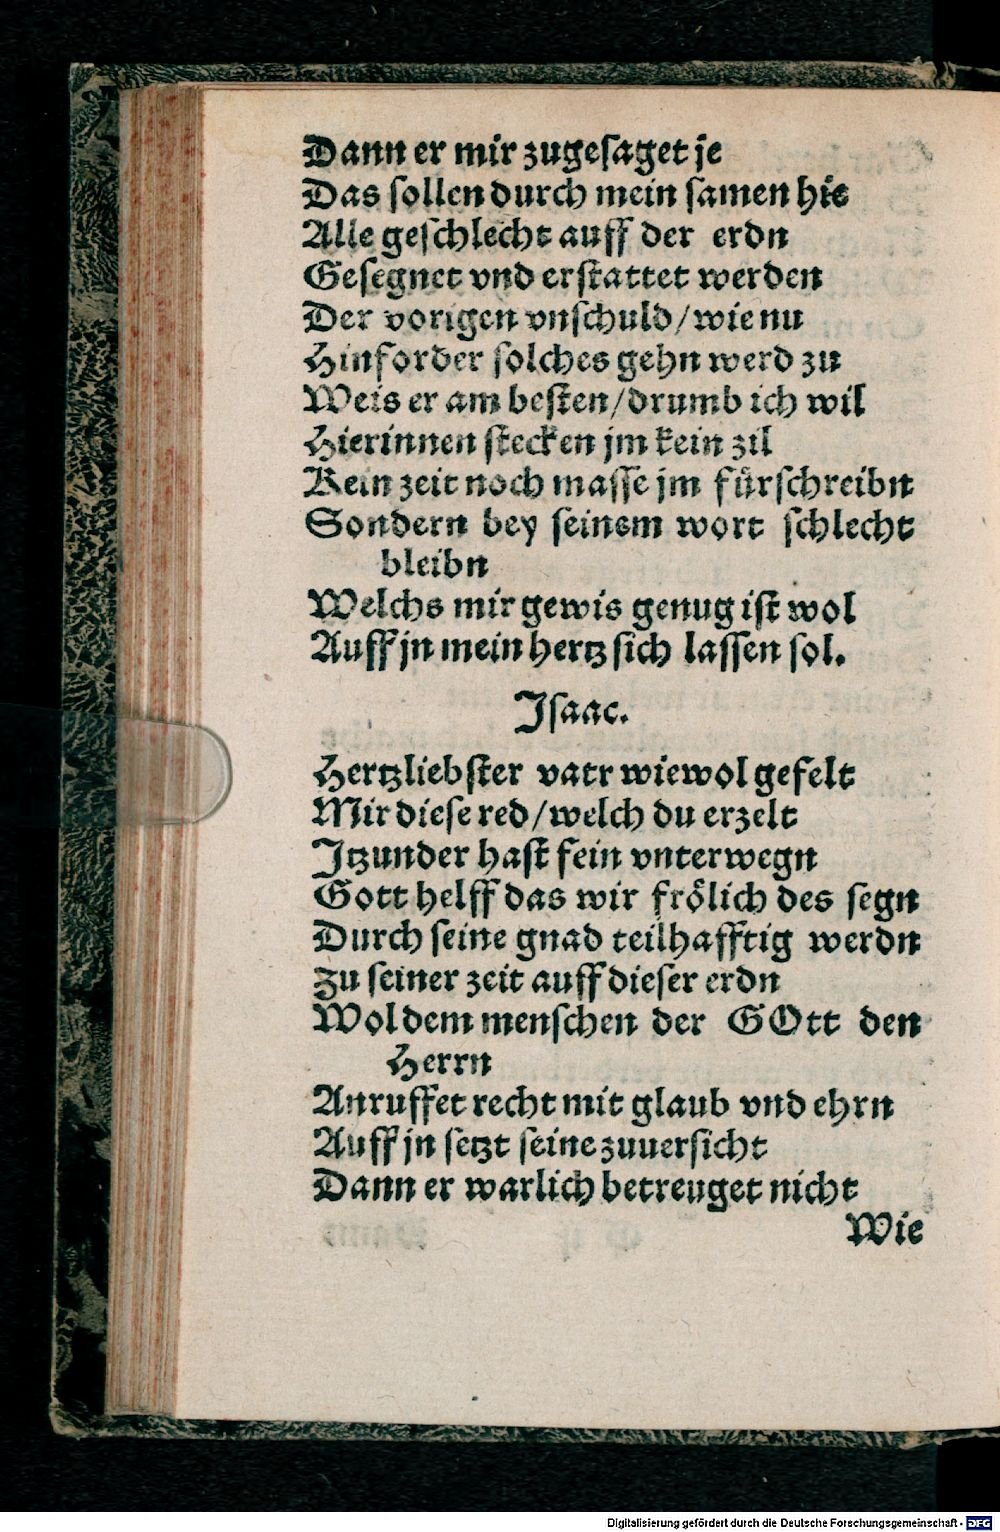 Dann er mir zugesaget je
Das sollen durch mein samen hie
Alle geschlecht auff der erdn
Gesegnet vnd erstattet werden
Der vorigen vnschuld/wie nu
Hinforder solches gehn werd zu
Weis er am besten/drumb ich wil
Hierinnen stecken jm kein zil
Kein zeit noch masse jm fürschreibn
Sondern bey seinem wort schlecht
bleibn
Welchs mir gewis genug ist wol
Auff jn mein hertz sich lassen sol.
Isaac.
Hertzliebster vatr wiewol gefelt
Mir diese red/welch du erzelt
Itzunder hast fein vnterwegn
Gott helff das wir frölich des segn
Durch seine gnad teilhafftig werdn
Zu seiner zeit auff dieser erdn
Wol dem menschen der GOtt den
Herrn
Anruffet recht mit glaub vnd ehrn
Auff jn setzt seine zuuersicht
Dann er warlich betreuget nicht
Wie
Digitalisierung gefördert durch die Deutsche Forschungsgemeinschaft - DFG